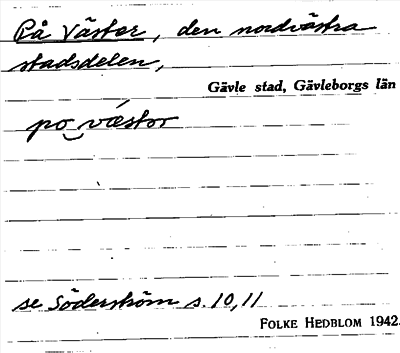 På Väster, den nordvästra
stadsdelen,
Gävle stad, Gävleborgs län
po væstər
se Söderström s. 10, 11
FOLKE HEDBLOM 1942.